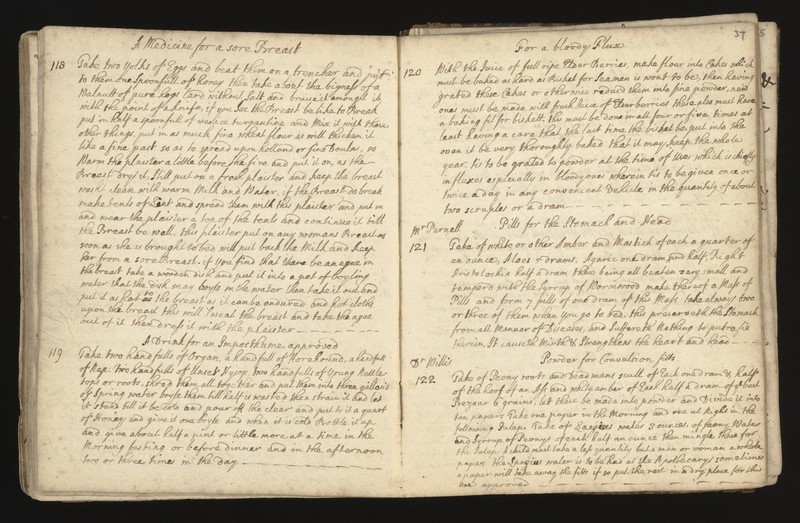 A Medicine for a sore Breast
118 Take two Yolks of Eggs and beat them on a trencher and put
to them one Spoonfull of honey then take about the bigness of a
Walnutt of pure hogs lard without Salt and bruise it amongst it
with the point of a knife, if you see the Breast be like to Break
put in half a spoonfull of venice turpentine and Mix it with these
other things, put in as much fine wheat flour as will thicken it
like a fine past so as to spread upon holland or fine Doulas, so
Warm the plaister a little before the fire and put it on, as the
Breast drys it, Still put on a fresh plaister and keep the breast
wash clean with warm Milk and Water, if the Breast do break
make tents of Lint and spread them with this plaister and put in
and wear the plaister a top of the tents and continue it till
the Breast be well. this plaister put on any womans Breast as
soon as she is brought to bed will put back the Milk and keep
her from a sore Breast. if you find that there be an ague in
the breast take a wooden dish and put it into a pot of boyling
water that the dish may boyle in the water then take it out and
put it as hot to the breast as it can be endured and hot cloths
upon the breast this will sweat the breast and take the ague
out of it then dress it with the plaister
A Drink for an Imposthume approved
119 Take two handfulls of Organ, a handfull of Horehound, a handfull
of Rap. two handfulls of Unset Hysop. two handfulls of Young Nettle
tops or roots, shred them all together and put them into three gallons
of Spring water boyle them till half is wasted then strain it and let
it stand till it be cold and pour off the clear and put to it a quart
of Honey and give it one boyle and when it is cold Bottle it up
and give about half a pint or little more at a time, in the
Morning fasting or before dinner and in the afternoon
two or three times in the day
37
5
For a bloody Flux
120 With the Juice of full ripe Elder Berries, make flour into Cakes which
must be baked as hard as Bisket for Seamen is wont to be, then having
grated these Cakes or otherwise reduced them into fine powder, new
ones must be made with fresh Juice of Elderberries these also must have
a baking fit for biskett. this must be done in all four or five times at
least having a care that the last time the bisket be put into the
oven it be very thoroughly baked that it may keep the whole
year. tis to be grated to powder at the time of Use which is chiefly
in fluxes especially in bloody ones wherein tis to be given once or
twice a day in any convenient Vehicle in the quantity of about
two scruples or a dram
Mr Purnell Pills for the Stomach and Head
121 Take of white or other Amber and Mastick of each a quarter of
an ounce, Aloes 5 drams. Agaric one dram and half, Right
Aristolochia half a dram these being all beaten very small and
temperd with the Syrrup of Wormwood make thereof a Mass of
Pills and form 7 pills of one dram of this Mass. take always two
or three of them when you go to bed, this preserveth the Stomach
from all Manner of Diseases, and Suffereth Nothing to putrefie
therein, It causeth Mirth & Strengthens the heart and head
Dr Willis Powder for Convulsion fitts
122 Take of Peony roots and Dead mans scull of Each one dram & half
of the hoof of an Ass and white amber of Each half a dram of the best
Bezoar 6 grains. let them be made into powder and Divide it into
ten papers Take one paper in the Morning and one at Night in the
following Julep. Take of water 3 ounces of peony Water
and Syrrup of Peonys of each half an ounce then mingle these for
the Julep. A child must take a less quantity but a man or woman a whole
paper. the water is to be had at the Apothecarys sometimes
a paper will take away the fitts if so put the rest in a dry place for this
Use approved